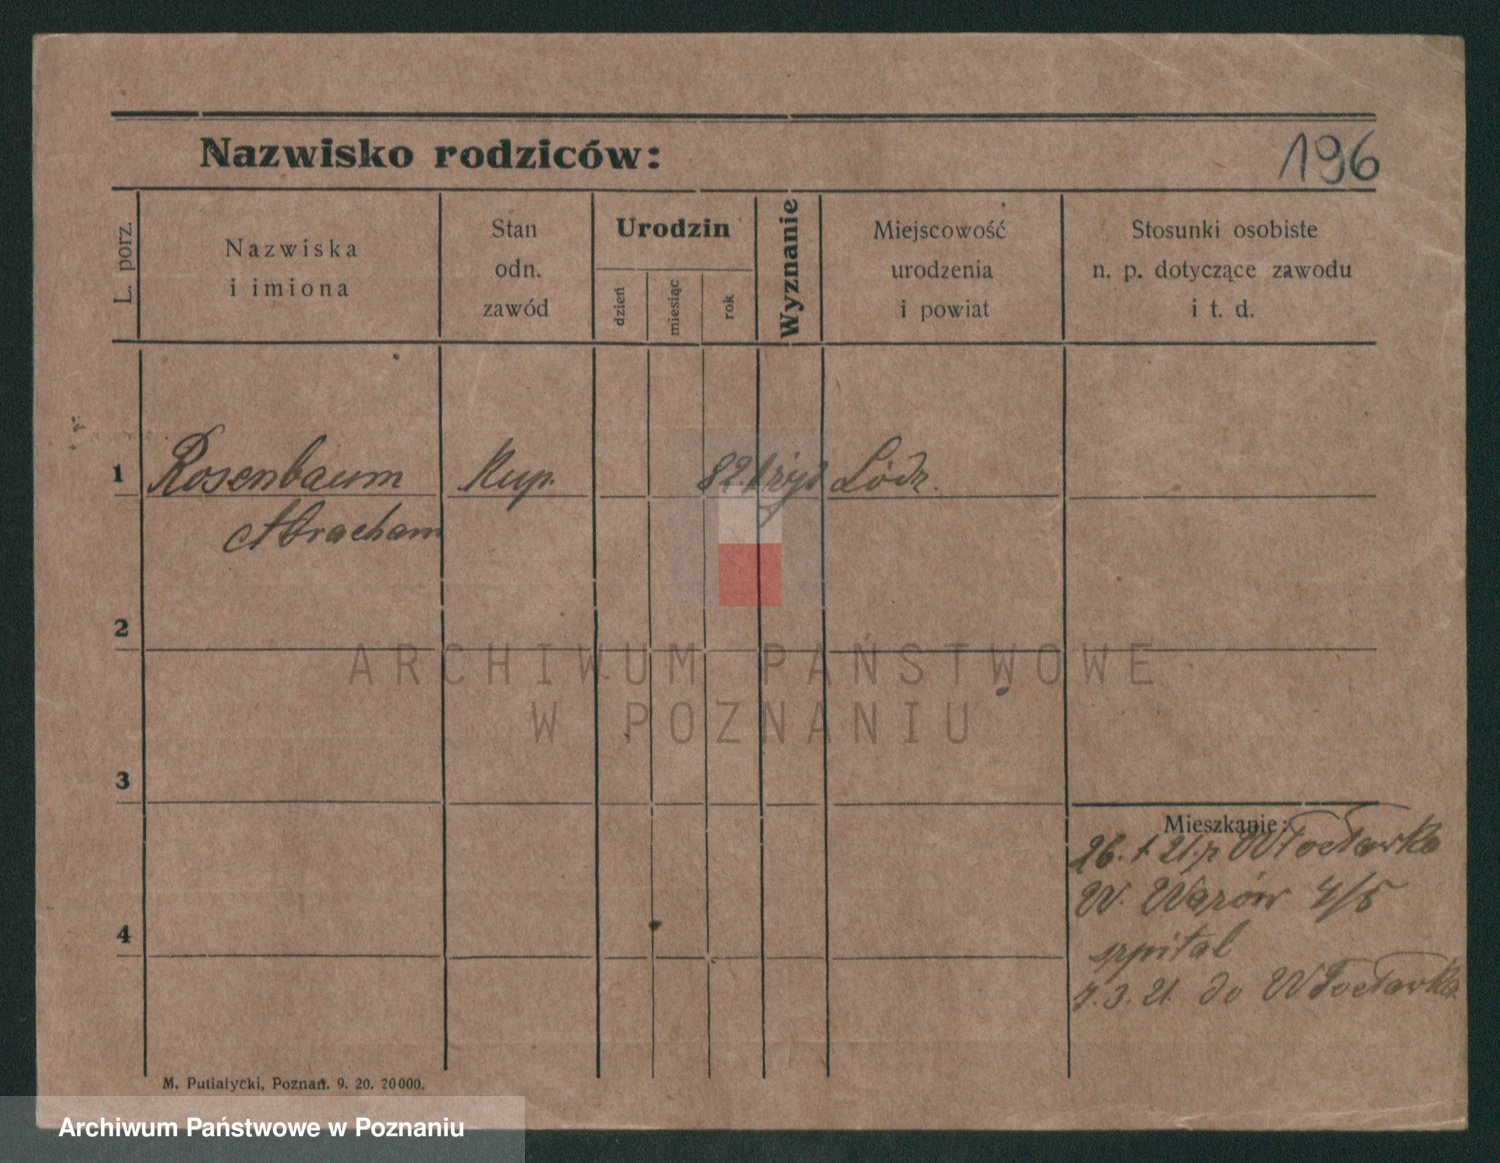 Nazwisko rodziców:
196
L. porz.
Nazwiska
i imiona
Stan
odn.
zawód
Urodzin
dzień
miesiąc
rok
Wyznanie
Miejscowość
urodzenia
i powiat
Stosunki osobiste
n. p. dotyczące zawodu
i t. d.
1 Rosenbaum Kup. 82. żyd Łódz.
Abracham
2
ARCHIWUM PAŃSTWOWE
W POZNANIU
3
Mieszkanie:
26. 21. z Włocławka
W. 4/5
szpital
7.3.21. do Włocławka
4
M. Putiatycki, Poznań. 9. 20. 20000.
Archiwum Państwowe w Poznaniu